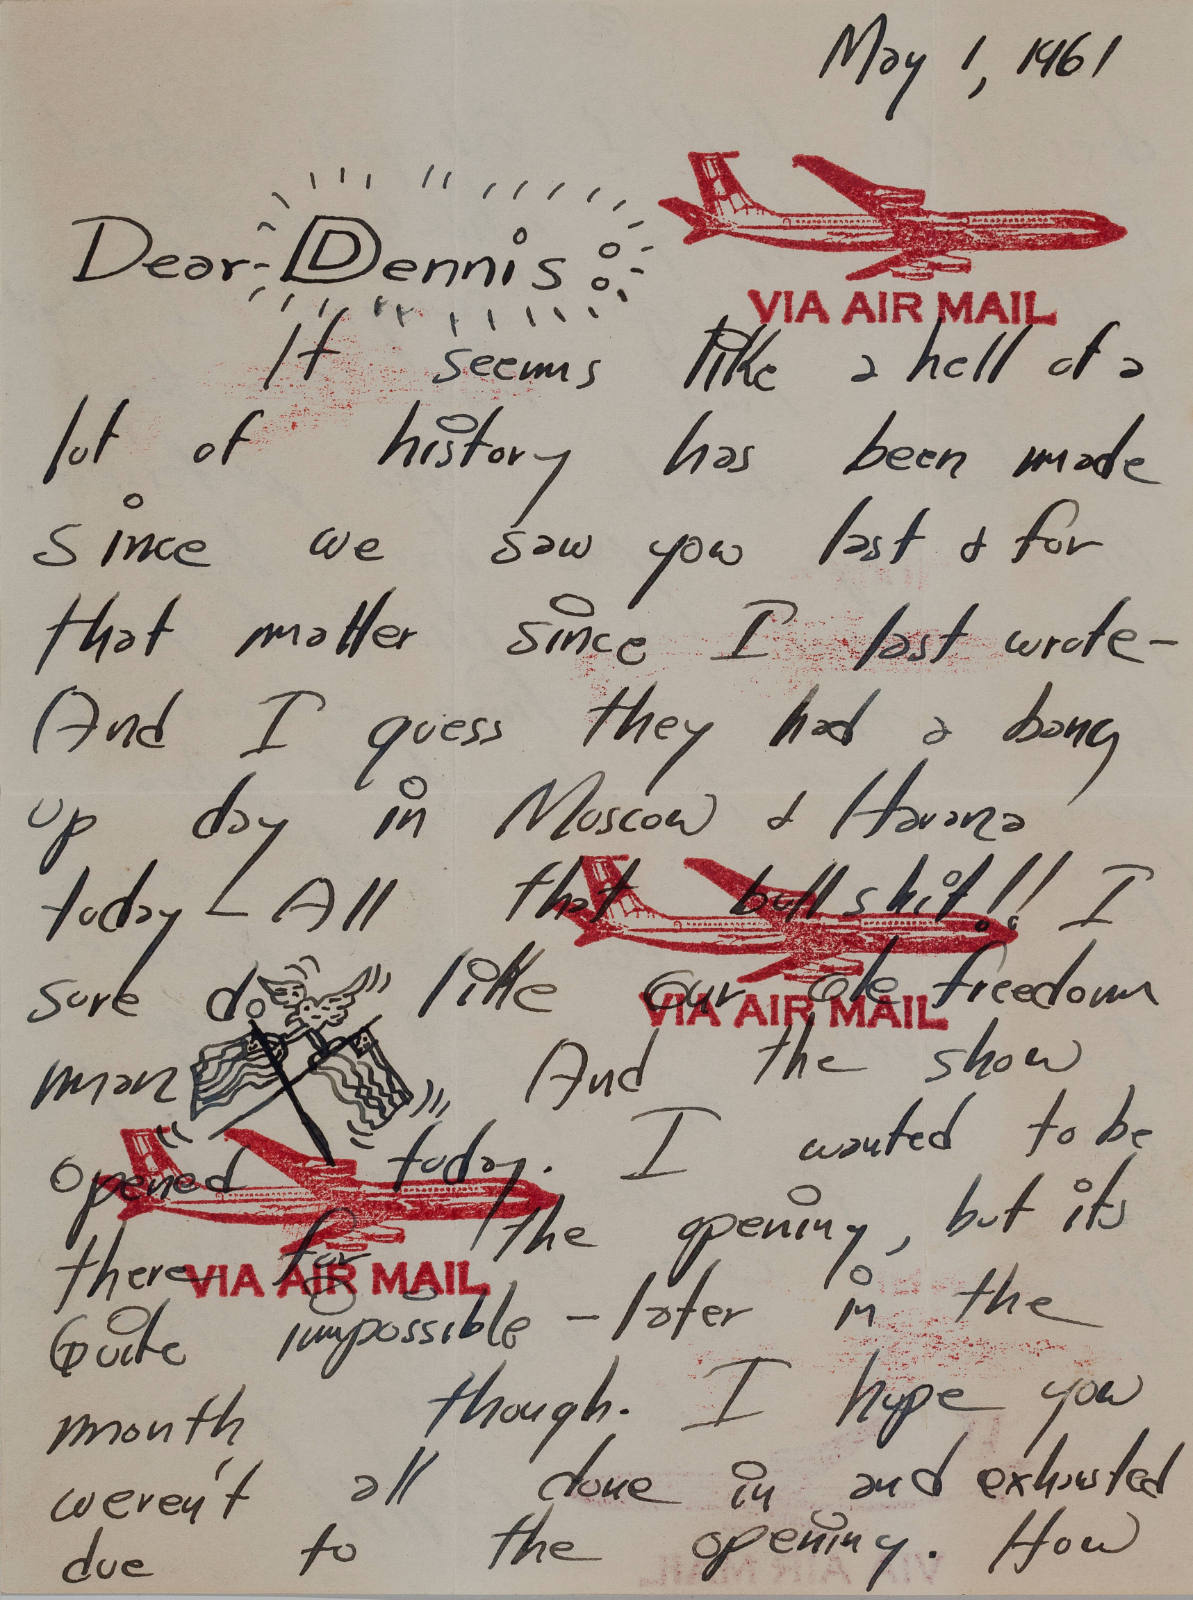 May 1, 1961
VIA AIR MAIL
Dear Dennis:
It seems like a hell of a
lot of history has been made
since we saw you last & for
that matter since I last wrote-
And I guess they had a bang
up day in Moscow & Havana
today - All that bullshit!! I
sure do like our ole freedom
VIA AIR MAIL
man And the show
opened today. I wanted to be
there for the opening, but its
VIA AIR MAIL
Quite impossible - later in the
month though. I hope you
weren't all done in and exhausted
due to the opening. How
VIA AIR MAIL